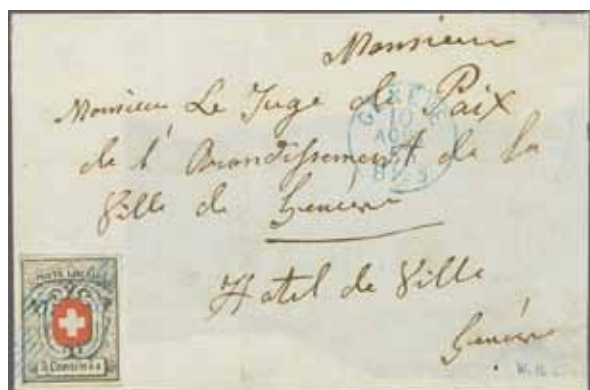 Monsieur
Monsieur Le Juge de Paix
de l'Arondissement de la
Ville de Genève
Hotel de Ville
Genève
GENÈVE
10
POSTE LOCALE
5 Centimes